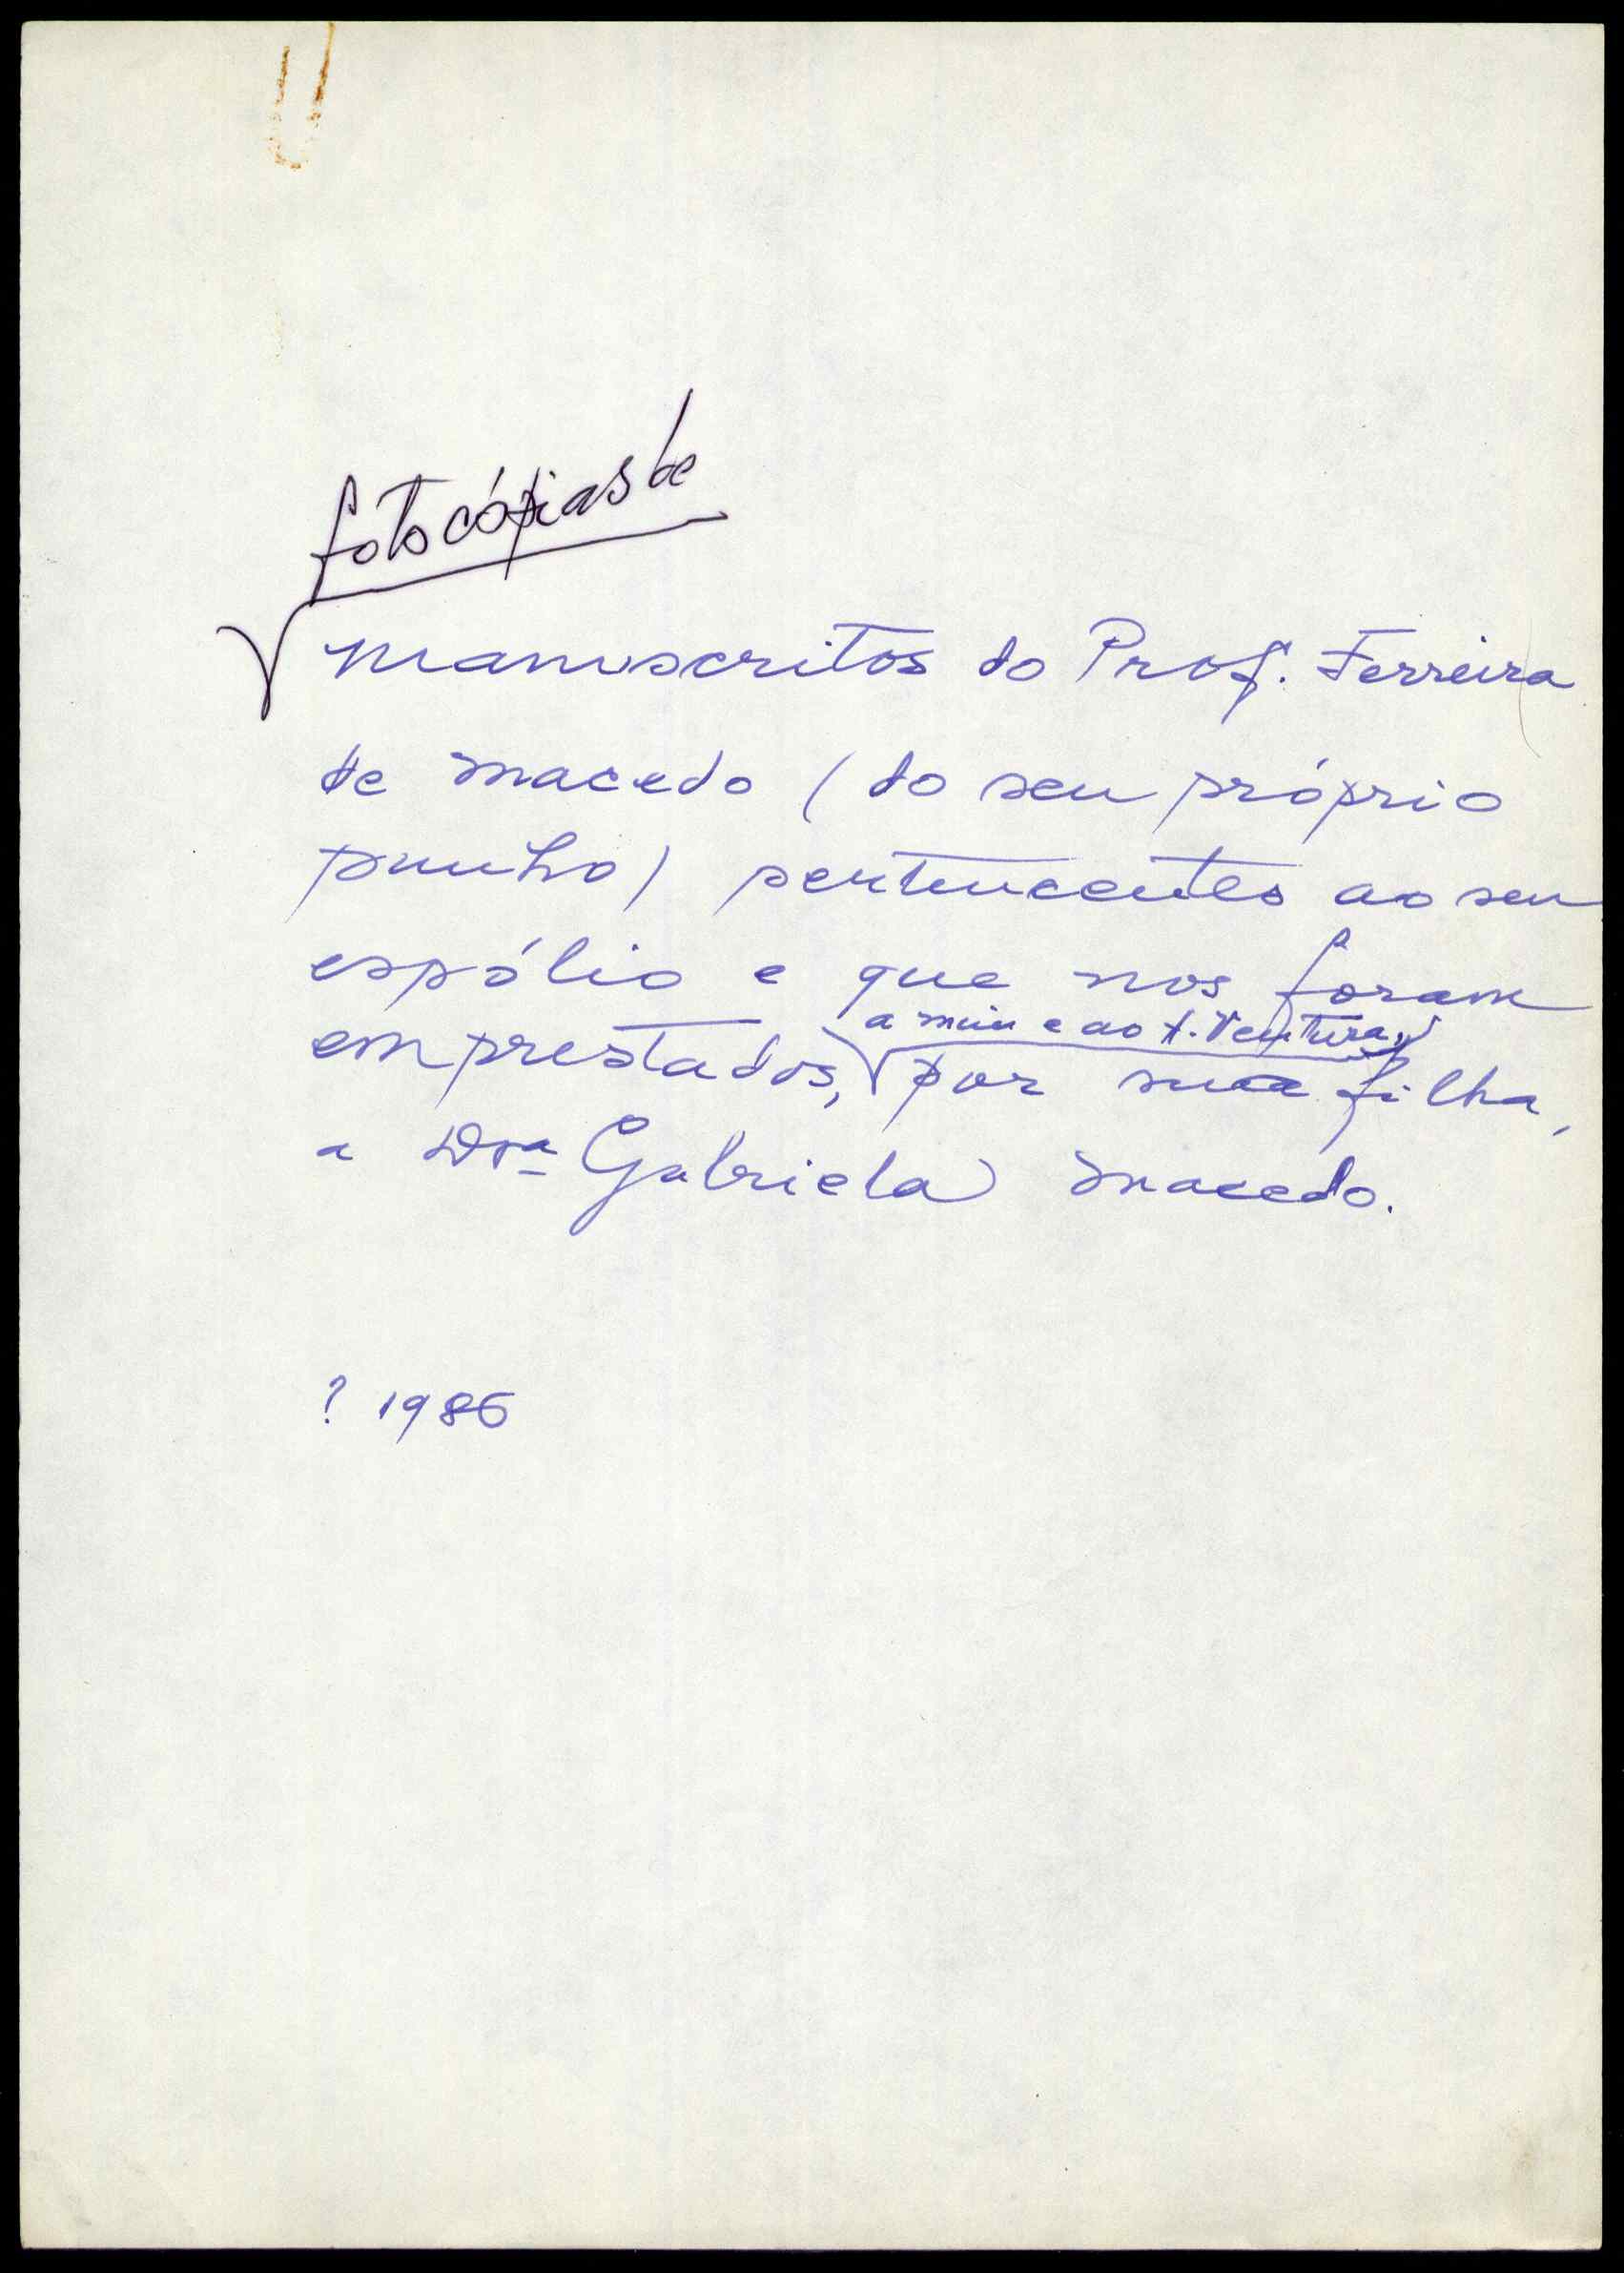 fotocópias de
manuscritos do Prof. Ferreira
de Macedo (do seu próprio
punho) pertencentes ao seu
espólio e que nos foram
a mim e ao A. Ventura,
emprestados, por sua filha,
a Drª Gabriela Macedo.
? 1986